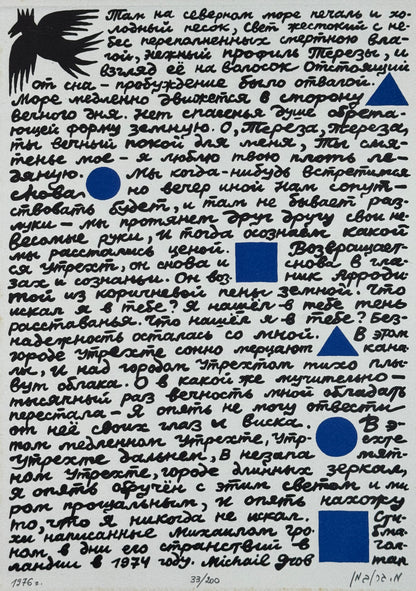 Там на северном море печаль и хо-
лодный песок, Свет жестокий с не-
бес переполненных смертною вла-
гой, нежный профиль Терезы, и
взгляд её на волосок Отстоящий
от сна – пробуждение было отвагой.
Море медленно движется в сторону
вечного дня. Нет спасенья душе обрета-
ющей форму земную. О, Тереза, Тереза,
ты вечный покой для меня, Ты смя-
тенье мое – я люблю твою плоть ле-
дяную. Мы когда-нибудь встретимся
снова но вечер иной нам сопут-
ствовать будет, и там не бывает раз-
луки – мы протянем друг другу свои не-
весомые руки, И тогда осознаем какой
мы расстались ценой. Возвращает-
ся Утрехт, он снова и снова в гла-
зах и сознаньи. Он воз- ник Афроди-
той из коричневой пены земной. Что
искал я в тебе? Я нашёл в тебе тень
расставанья. Что нашёл я в тебе? Без-
надежность осталась со мной. В этом
городе Утрехте сонно мерцают кана-
лы, и над городом Утрехтом тихо плы-
вут облака. О в какой же мучительно –
тысячный раз вечность мной обладать
перестала – Я опять не могу отвести
от неё своих глаз и виска. В э-
том медленном Утрехте, Утр- ехте
Утрехте дальнем, В незапа мят-
ном Утрехте, городе длинных зеркал,
я опять обручён с этим светом и ми
ром прощальным, И опять нахожу
то, что я никогда не искал. Сти-
хи написанные Михаилом Гро- бма-
ном, в дни его странствий в Гол-
ландии в 1974 году. Michail Grob man
1976 г. 33/200 מ. גרובמן